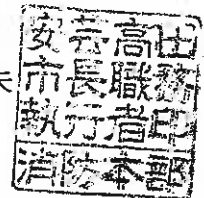 安芸高田
市長職務
執行者印
消防本部